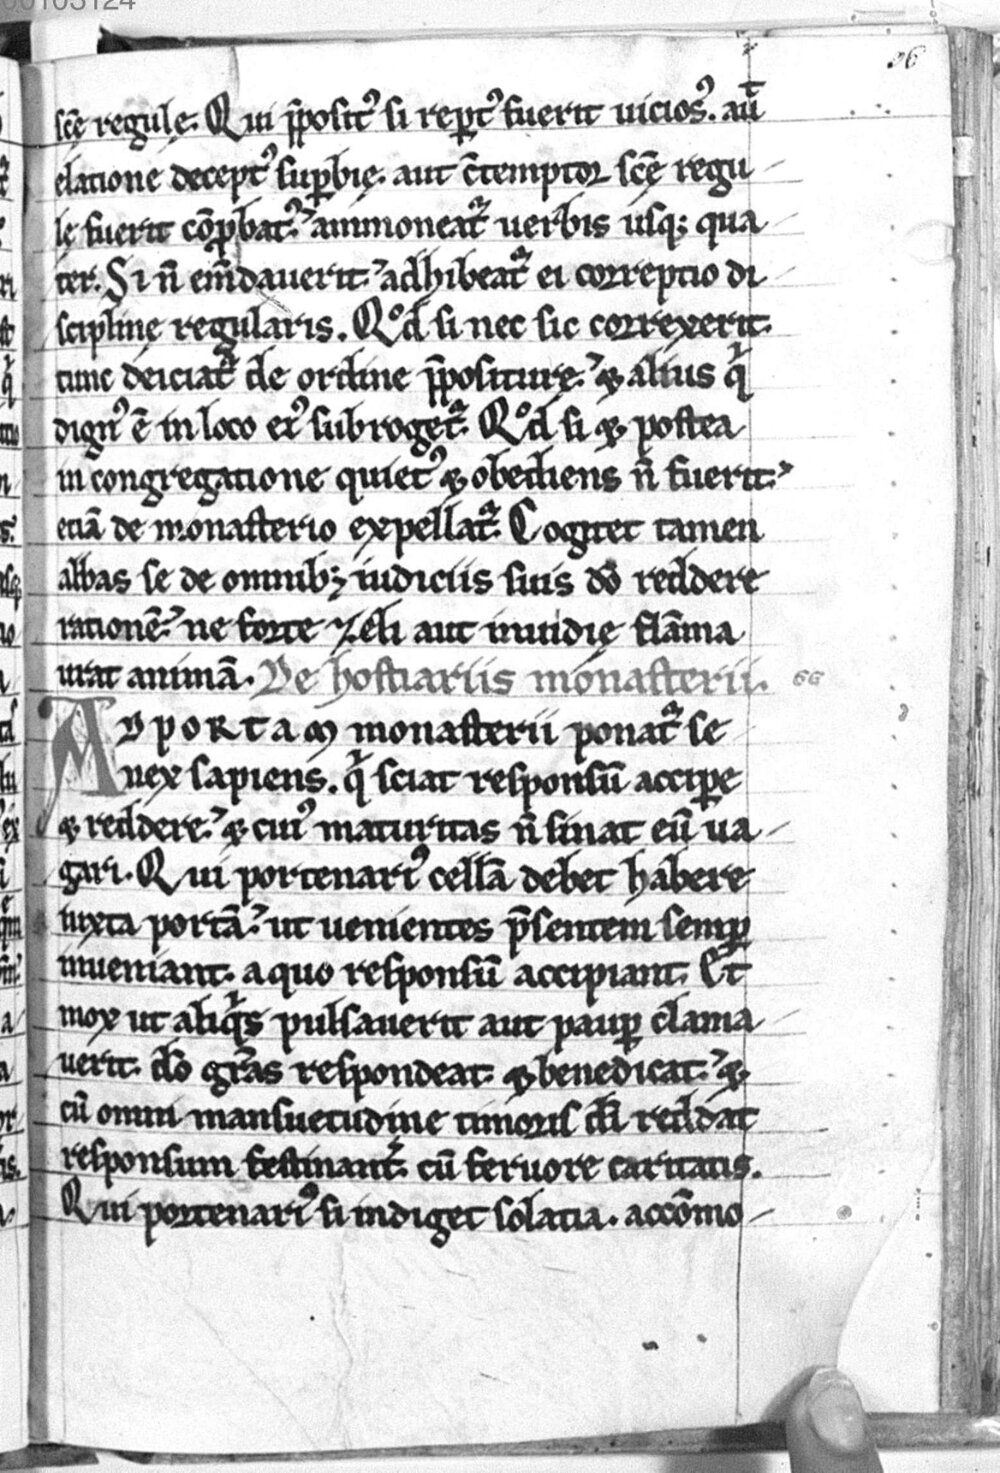 00103124
96
scē regulę. Qui p̄posit᾽ si rep̱t᾽ fuerit uicios᾽. aut̄
elatione decept᾽ sup̱bię. aut c̄temptor scē regu
le fuerit cōp̱bat᾽. ammoneat᷑ uerbis usq; qua
ter. Si n̄ em̄dauerit. adhibeat᷑ ei correptio di
sciplinę regularis. Qͦd si nec sic correxerit.
tunc deiciat᷑ de ordine p̄positurę. & alius qͥ
dign᾽ ē in loco ei᾽ subroget᷑. Qͦd si & postea
in congregatione quiet᾽ & obediens n̄ fuerit.
etiā de monasterio expellat᷑. Cogitet tamen
abbas se de omnib; iudiciis suis dō reddere
rationē. ne forte zeli aut inuidię flāma
urat animā. De hostiariis monasterii. 66
AD PORTAM monasterii ponat᷑ se
nex sapiens. qͥ sciat responsū accipe̱
& reddere. & cui᾽ maturitas n̄ sinat eū ua
gari. Qui portenari᾽ cellā debet habere
iuxta portā. ut uenientes p̄sentem semp̱
inueniant. a quo responsū accipiant. Et
mox ut aliqͥs pulsauerit aut paup̱ clama
uerit. dō gr̄as respondeat & benedicat. &
cū omni mansuetudine timoris dī reddat
responsum festinant᷑. cū feruore caritatis.
Qui portenari᾽ si indiget solatia. accōmo